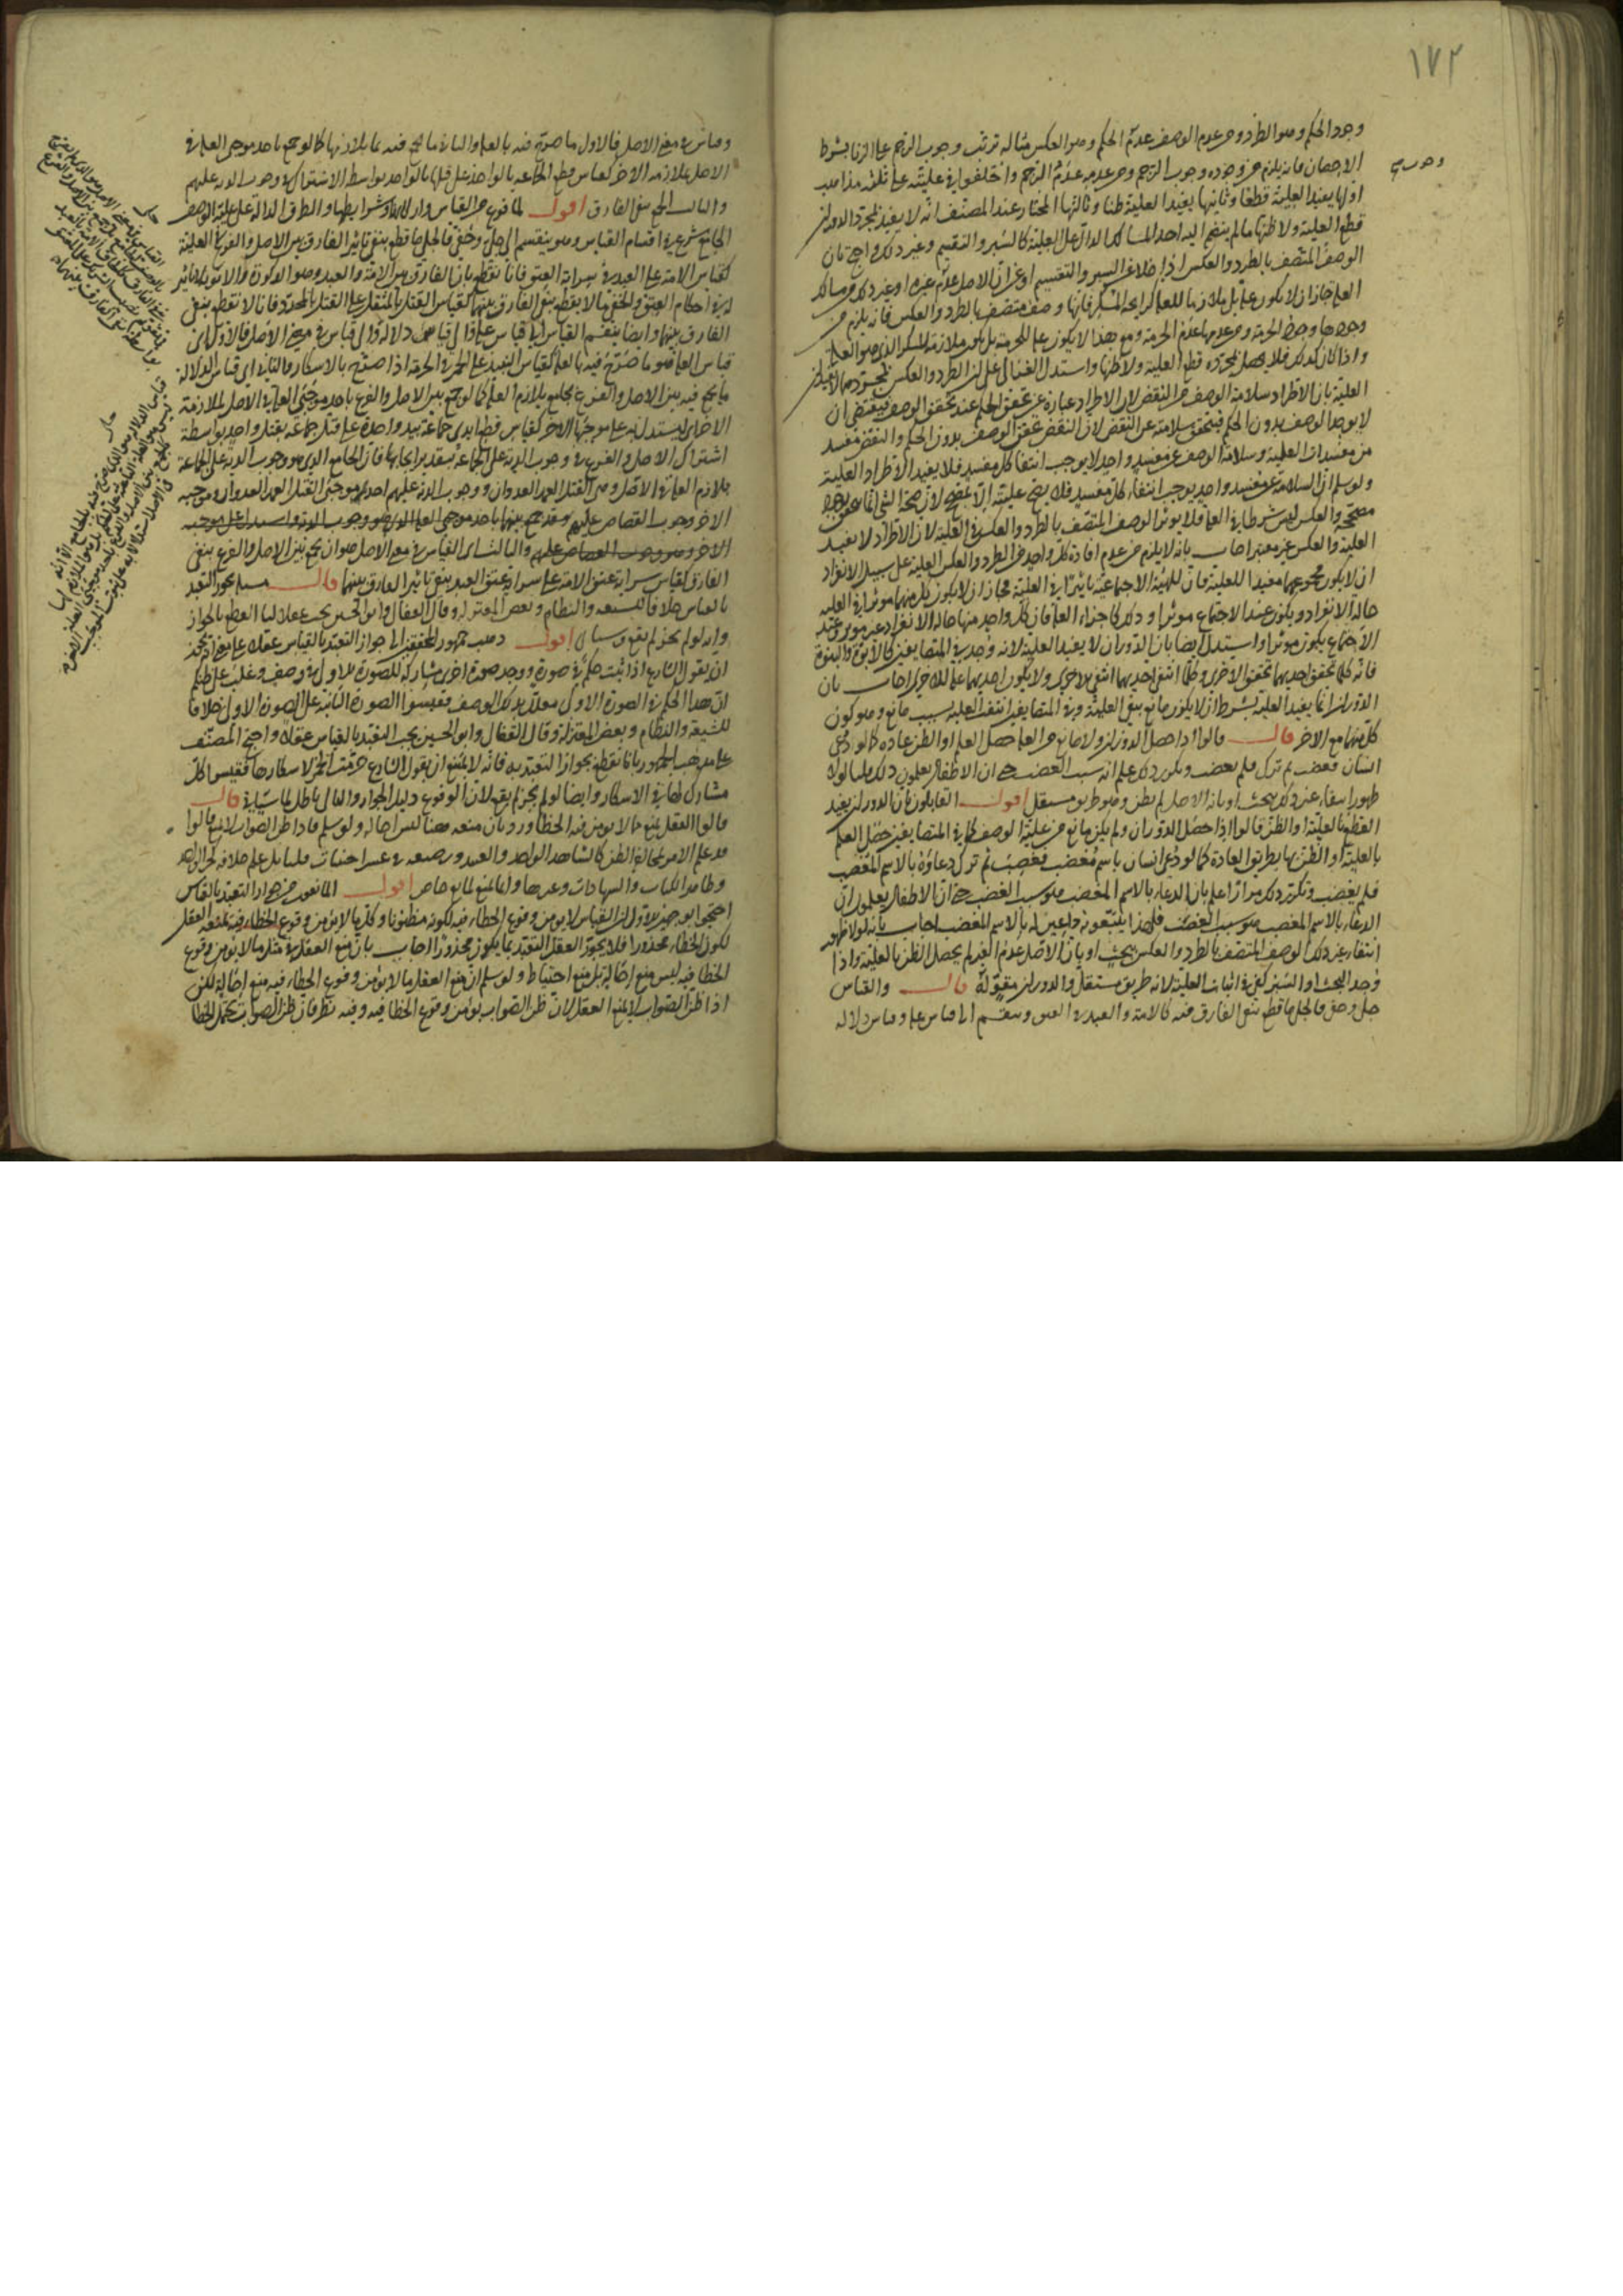 ١٧٢
وجود الحكم وهو الطرد ومن عدم الوصف عدم الحكم وهو العكس مثاله ترتب وجوب الرجم على الزنا بشرط
الاحصان فانه يلزم من وجوده وجوب الرجم ومن عدمه عدم الرجم واختلفوا في عليته على ثلثة مذاهب
اولها يفيد العلية قطعا وثانيها يفيد العلية ظنا وثالثها المختار عند المصنف انه لا يفيد بمجرد الدوران
قطع العلية ولا ظنها ما لم ينضم اليه احد المسالك الدال على العلية كالسبر والتقسيم وغير ذلك واحتج بان
الوصف المتصف بالطرد والعكس اذا خلا عن السبر والتقسيم او عن ان الاصل عدم غيره او غير ذلك من مسالك
العلة جاز ان لا يكون علة بل ملازما للعلة كرائحة المسكر فانها وصف متصف بالطرد والعكس فانه يلزم من
وجودها وجود الحرمة ومن عدمها عدم الحرمة ومع هذا لا يكون علة للحرمة بل يكون ملازمة للسكر الذي هو العلة
واذا كان كذلك فلا يحصل بمجرده قطع العلية ولا ظنها واستدل الغزالي على ان الطرد والعكس بمجردهما لا يفيدان
العلية بان الاطراد سلامة الوصف من النقض لان الاطراد عبارة عن تحقق الحكم عند تحقق الوصف فيقتضي ان
لا يوجد الوصف بدون الحكم فيتحقق سلامته عن النقض لان النقض تحقق الوصف بدون الحكم والنقض مفسد
من مفسدات العلية وسلامة الوصف عن مفسد واحد لا يوجب انتفا كل مفسد فلا يفيد الاطراد العلية
ولو سلم ان السلامة عن مفسد واحد يوجب انتفاء كل مفسد فلا يصح عليته الا بمصحح لان صحة الشي انما يتحقق بوجود
مصححه والعكس ليس شرطا في العلة فلا يوثر الوصف المتصف بالطرد والعكس في العلية لان الاطراد لا يفيد
العلية والعكس غير معتبر اجاب بانه لا يلزم من عدم افادة كل واحد من الطرد والعكس العلية على سبيل الانفراد
ان لا يكون مجموعهما مفيدا للعلية فان للهيئة الاجتماعية تاثيرا في العلية فجاز ان لا يكون كل منهما موثرا في العلية
حالة الانفراد ويكون عند الاجتماع موثرا وذلك كاجزاء العلة فان كل واحد منها حالة الانفراد غير موثر وعند
الاجتماع يكون موثرا واستدل ايضا بان الدوران لا يفيد العلية لانه وجد في المتضايفين كالابوة والبنوة
فانه كلما تحقق احديهما تحقق الاخرى وكلما انتفى احديهما انتفى الاخرى ولا يكون احديهما علة للاخرى اجاب بان
الدوران انما يفيد العلية بشرط ان لا يكون مانع ينفي العلية وفي المتضايفين انتفت العلية بسبب مانع وهو كون
كل منهما مع الاخر قال قالوا اذا حصل الدوران ولا مانع من العلة حصل العلم او الظن عادة كما لو دعي
انسان فغضب ثم ترك فلم يغضب وتكرر ذلك علم انه سبب الغضب حتى ان الاطفال يعلمون ذلك قلنا لولا
ظهور انتفاء غير ذلك ببحث او بانه الاصل لم يظن وهو طريق مستقل اقول القايلون بان الدوران يفيد
القطع بالعلية او الظن قالوا اذا حصل الدوران ولم يكن مانع من علية الوصف كما في المتضايفين حصل العلم
بالعلية او الظن بها بطريق العادة كما لو دعي انسان باسم مغضب فغضب ثم ترك دعاؤه بالاسم المغضب
فلم يغضب وتكرر ذلك مرارا علم بان الدعاء بالاسم المغضب هو سبب الغضب حتى ان الاطفال يعلمون ان
الدعاء بالاسم المغضب هو سبب الغضب فلهذا يتبعونه داعين له بالاسم المغضب اجاب بانه لولا ظهور
انتفاء غير ذلك الوصف المتصف بالطرد والعكس ببحث او بان الاصل عدم الغير لم يحصل الظن بالعلية واذا
وجد البحث او السبر كفى في اثبات العلية لانه طريق مستقل والدوران مقوله قال والقياس
جلي وخفي فالجلي ما قطع بنفي الفارق فيه كالامة والعبد في العتق وينقسم الى قياس علة وقياس دلالة
وقياس في معنى الاصل فالاول ما صرح فيه بالعلة والثاني ما يجمع فيه بما يلازمها كما لو جمع باحد موجبي العلة في
الاصل لملازمة الاخر كقياس قطع الجماعة بالواحد على قتلها بالواحد بواسطة الاشتراك في وجوب الدية عليهم
والثالث الجمع بنفي الفارق اقول لما فرغ من القياس واركانه وشرايطها والطرق الدالة على علية الوصف
الجامع شرع في اقسام القياس وهو ينقسم الى جلي وخفي فالجلي ما قطع بنفي تاثير الفارق بين الاصل والفرع في العلية
كقياس الامة على العبد في سراية العتق فانا نقطع بان الفارق بين الامة والعبد وهو الذكورة والانوثة لا تاثير
له في احكام العتق والخفي ما لا يقطع بنفي الفارق بينهما كقياس القتل بالمثقل على القتل بالمحدد فانا لا نقطع بنفي
الفارق بينهما وايضا ينقسم القياس الى قياس علة والى قياس دلالة والى قياس في معنى الاصل فالاول اي
قياس العلة هو ما صرح فيه بالعلة كقياس النبيذ على الخمر في الحرمة اذا صرح بالاسكار والثاني اي قياس الدلالة
ما يجمع فيه بين الاصل والفرع بجامع يلازم العلة كما لو جمع بين الاصل والفرع باحد موجبي العلة في الاصل لملازمة
الاخر اي ليستدل به على موجبها الاخر كقياس قطع ايدي جماعة بيد واحدة على قتل جماعة بقتل واحد بواسطة
اشتراك الاصل والفرع في وجوب الدية على الجماعة بتقدير ايجابها فان الجامع الذي هو وجوب الدية على الجماعة
يلازم العلة في الاصل وهي القتل العمد العدوان ووجوب الدية عليهم احدى موجبي القتل العمد العدوان وموجبه
الاخر وجوب القصاص عليهم وقد جمع بينهما باحد موجبي العلة الذي هو وجوب الدية واستدل على موجبه
الاخر وهو وجوب القصاص عليهم والثالث اي القياس في معنى الاصل هو ان يجمع بين الاصل والفرع بنفي
الفارق كقياس سراية عتق الامة على سراية عتق العبد بنفي تاثير الفارق بينهما قال مسله يجوز التعبد
بالقياس خلافا للشيعة والنظام وبعض المعتزلة وقال القفال وابو الحسين يجب عقلا لنا القطع بالجواز
وانه لو لم يجز لم يقع وسياتي اقول ذهب جمهور المحققين الى جواز التعبد بالقياس عقلا على معنى انه يجوز
ان يقول الشارع اذا ثبت حكم في صورة ووجد صورة اخرى مشاركة للصورة الاولى في وصف وغلب على ظنكم
ان هذا الحكم في الصورة الاولى معلل بذلك الوصف فقيسوا الصورة الثانية على الصورة الاولى خلافا
للشيعة والنظام وبعض المعتزلة وقال القفال وابو الحسين يجب التعبد بالقياس عقلا واحتج المصنف
على مذهب الجمهور بانا نقطع بجواز التعبد به فانه لا يمتنع ان يقول الشارع حرمت الخمر لاسكارها فقيسوا كل
مشارك لها في الاسكار وايضا لو لم يجز لم يقع لان الوقوع دليل الجواز والتالي باطل لما سياتي قال
قالوا العقل يمنع ما لا يومن فيه الخطا ورد بان منعه هنا ليس احالة ولو سلم فاذا ظن الصواب لا يمنع قالوا
قد علم الامر بمخالفة الظن كالشاهد الواحد والعبيد ورضيعة في عشر اجنبيات قلنا بل علم خلافه كخبر الواحد
وظاهر الكتاب والشهادات وغيرها وانما منع لمانع خاص اقول المانعون من جواز التعبد بالقياس
احتجوا بوجهين الاول ان القياس لا يومن وقوع الخطاء فيه لكونه مظنونا وكل ما لا يؤمن وقوع الخطاء فيه يمنعه العقل
لكون الخطاء محذورا فلا يجوز العقل التعبد بما يكون محذورا اجاب بان منع العقل في مثل ما لا يومن وقوع
الخطا فيه ليس منع احالة بل منع احتياط ولو سلم ان منع العقل ما لا يؤمن وقوع الخطاء فيه منع احالة لكن
اذا ظن الصواب لا يمنع العقل لان ظن الصواب يؤمن وقوع الخطا فيه وفيه نظر فان ظن الصواب يحتمل الخطا